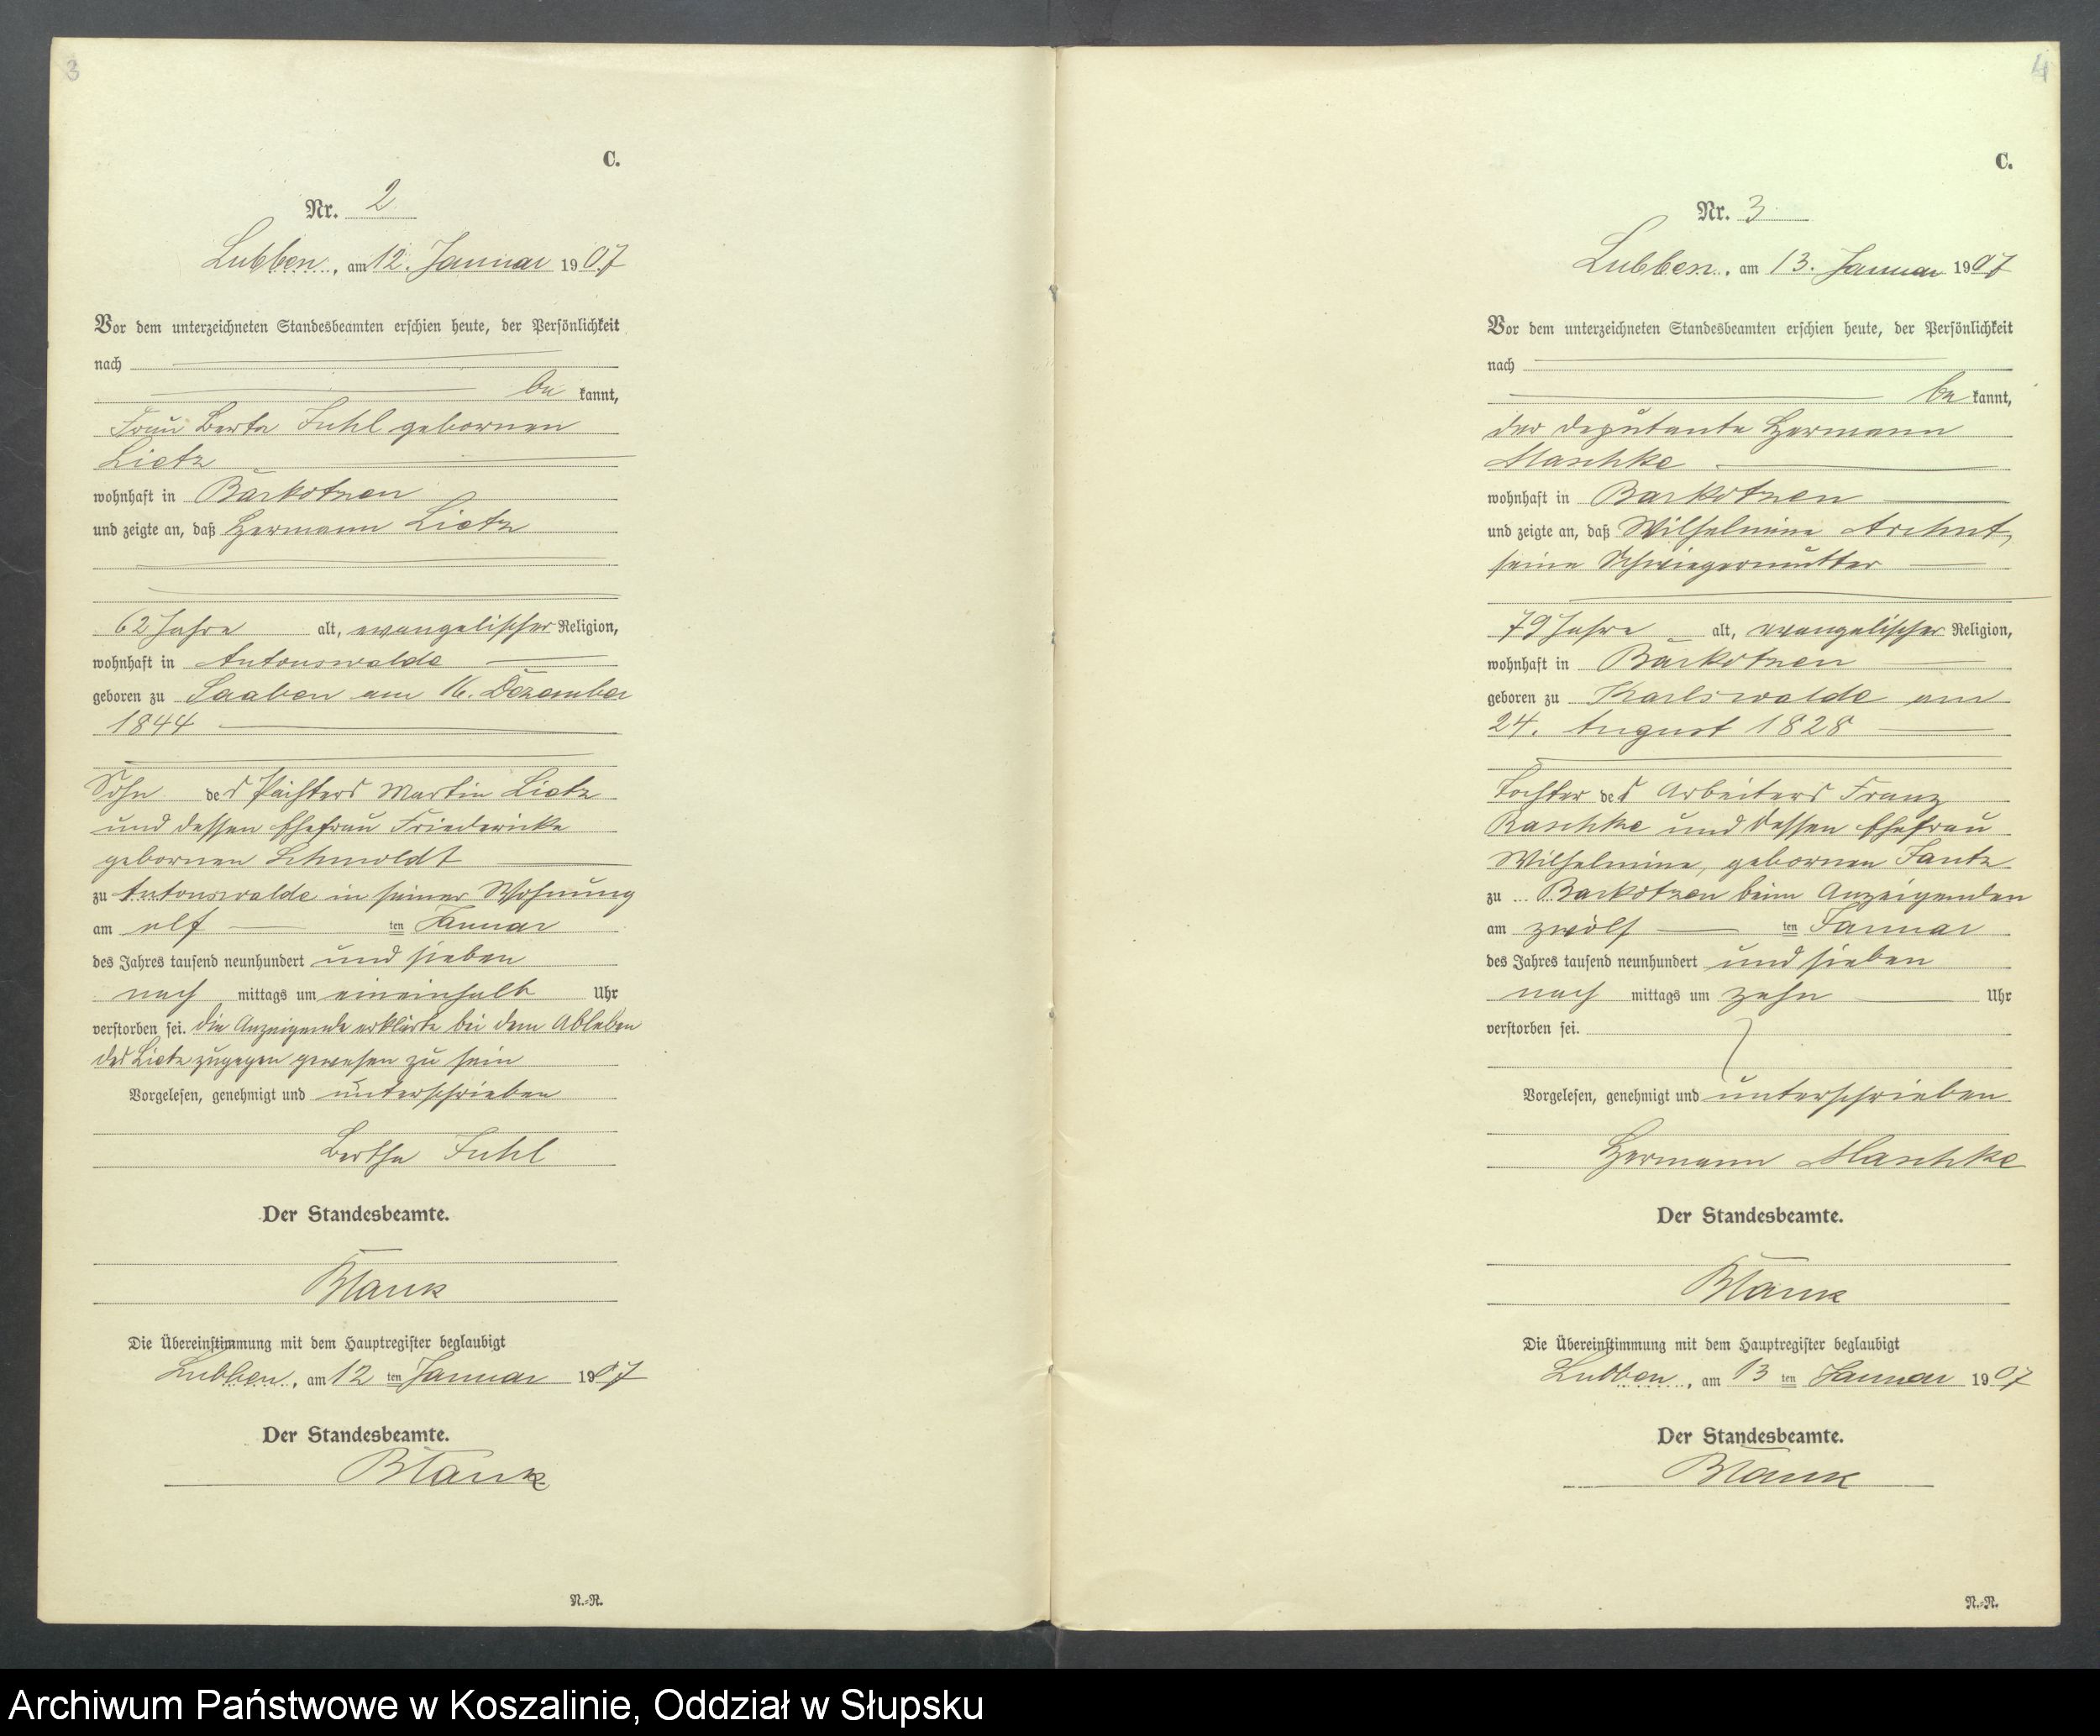 3
C.
Nr. 2
Lubben, am 12. Januar 1907
Vor dem unterzeichneten Standesbeamten erschien heute, der Persönlichkeit
nach
be kannt,
Frau Berta Fuhl gebornen
Lietz
wohnhaft in Barkotzen
und zeigte an, daß Hermann Lietz
62 Jahre alt, evangelischer Religion,
wohnhaft in Antonswalde
geboren zu Saaben am 16. Dezember
1844
Sohn des Pächters Martin Lietz
und dessen Ehefrau Friedericke
gebornen Schmoldt
zu Antonswalde in seiner Wohnung
am elf ten Januar
des Jahres tausend neunhundert und sieben
nach mittags um eineinhalb Uhr
verstorben sei. Die Anzeigende erklärte bei dem Ableben
des Lietz zugegen gewesen zu sein
Vorgelesen, genehmigt und unterschrieben
Bertha Fuhl
Der Standesbeamte.
Blank
Die Übereinstimmung mit dem Hauptregister beglaubigt
Lubben, am 12 ten Januar 1907
Der Standesbeamte.
Blank
N.-R.
4
C.
Nr. 3
Lubben, am 13. Januar 1907
Vor dem unterzeichneten Standesbeamten erschien heute, der Persönlichkeit
nach
be kannt,
der Deputante Hermann
Maschke
wohnhaft in Barkotzen
und zeigte an, daß Wilhelmine
seine Schwiegermutter
79 Jahre alt, evangelischer Religion,
wohnhaft in Barkotzen
geboren zu Karlswalde am
24. August 1828
Tochter des Arbeiters Franz
Raschke und dessen Ehefrau
Wilhelmine, gebornen
zu Barkotzen beim Anzeigenden
am zwölf ten Januar
des Jahres tausend neunhundert und sieben
nach mittags um zehn Uhr
verstorben sei.
Vorgelesen, genehmigt und unterschrieben
Hermann Maschke
Der Standesbeamte.
Blank
Die Übereinstimmung mit dem Hauptregister beglaubigt
Lubben, am 13 ten Januar 1907
Der Standesbeamte.
Blank
N.-R.
Archiwum Państwowe w Koszalinie, Oddział w Słupsku